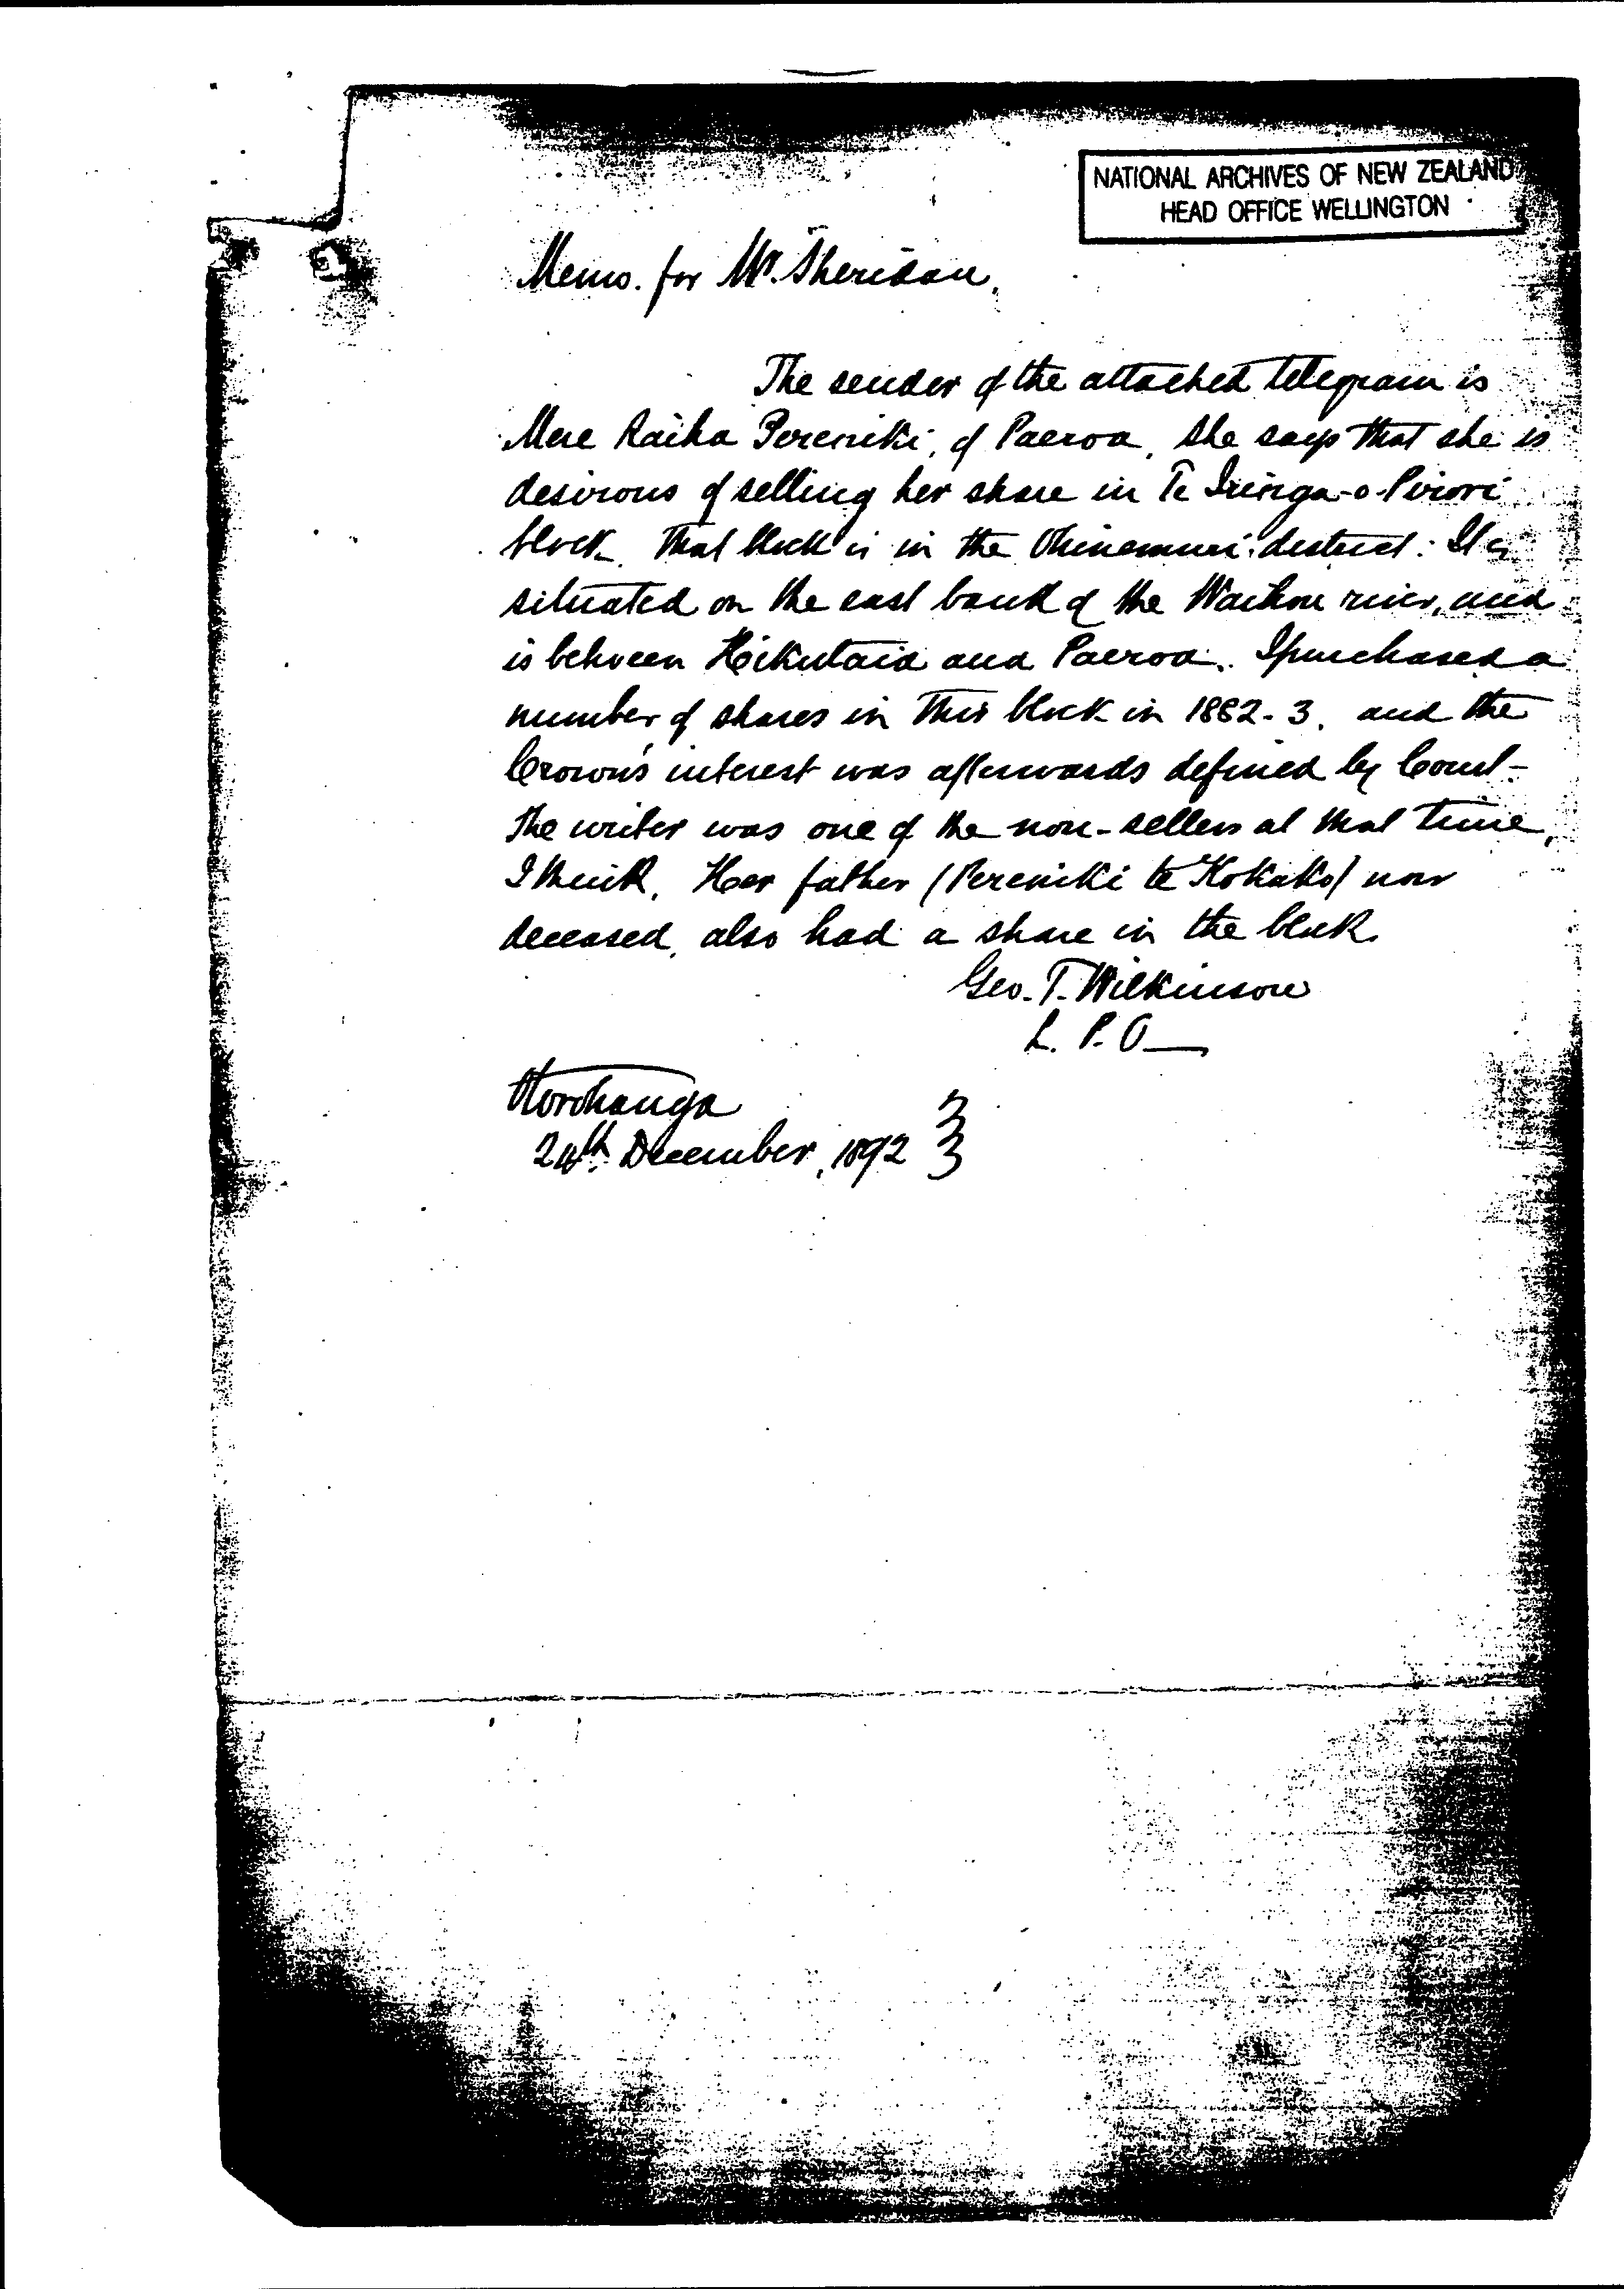 NATIONAL ARCHIVES OF NEW ZEALAND
HEAD OFFICE WELLINGTON
Memo. for Mr. Sheridan,
The sender of the attached telegram is
Mere Raiha Pereniki, of Paeroa, she says that she is
desirous of selling her share in Te Iringa-o-Pirori
block. That block is in the Ohinemuri district: It is
situated on the east bank of the Waihou river, and
is between Hikutaia and Paeroa. I purchased a
number of shares in this block in 1882-3, and the
Crown's interest was afterwards defined by Court-
The writer was one of the non-sellers at that time,
I think. Her father (Pereniki te Kokako) now
deceased, also had a share in the block.
Geo. T. Wilkinson
L. P. O
Otorohanga
24th December, 1892